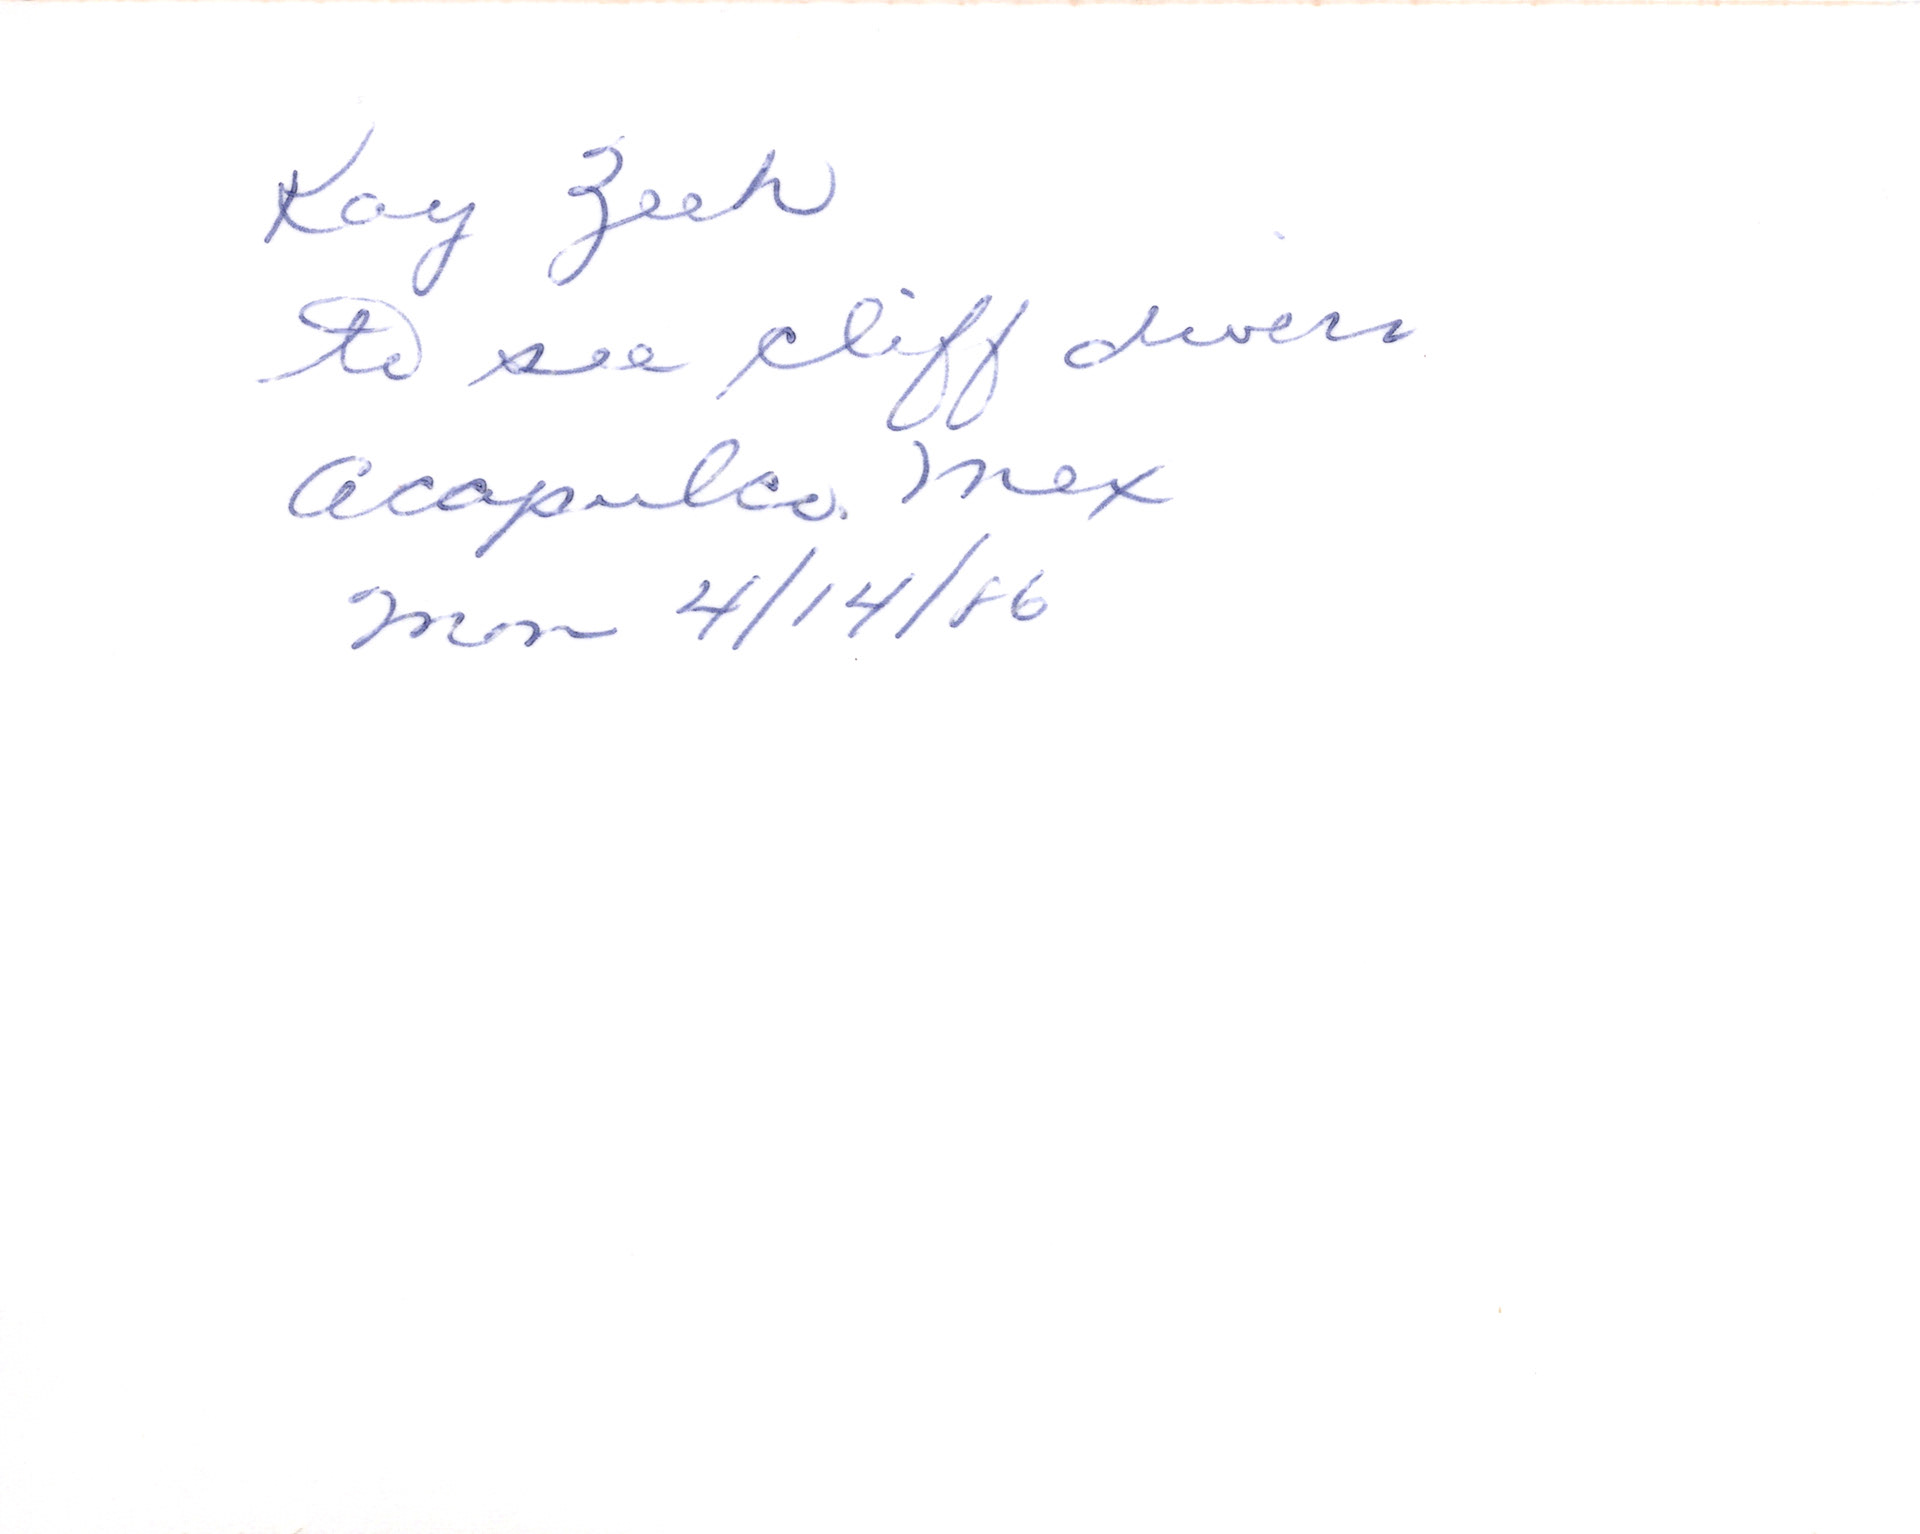 Kay Zech
to see cliff divers
Acapulco. Mex
Mon 4/14/86